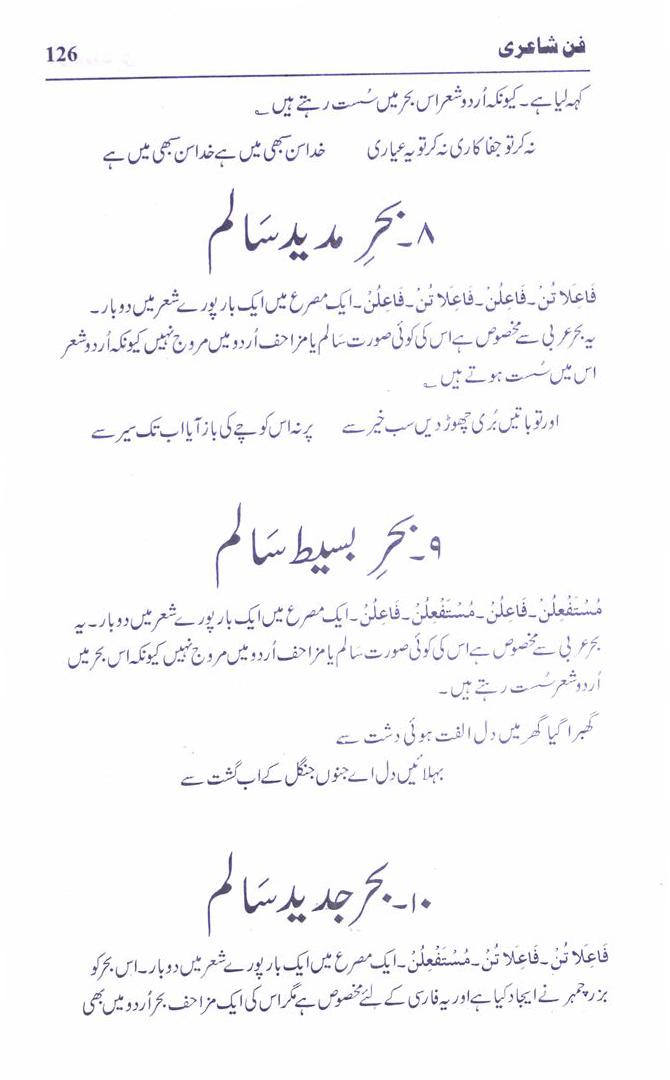 فن شاعری 126
کہہ لیا ہے۔ کیونکہ اُردو شعر اس بحر میں سُست رہتے ہیں ؎
نہ کر تو جفا کاری نہ کر تو یہ عیاری خدا سن سبھی میں ہے خدا سن سبھی میں ہے
۸۔ بحرِ مدید سَالم
فَاعِلَا تُنْ۔ فَاعِلُنْ۔ فَاعِلَا تُنْ۔ فَاعِلُنْ۔ ایک مصرع میں ایک بار پورے شعر میں دوبار۔
یہ بحر عربی سے مخصوص ہے اس کی کوئی صورت سَالم یا مزاحف اُردو میں مروج نہیں کیونکہ اُردو شعر
اس میں سُست ہوتے ہیں ؎
اور تو باتیں بُری چھوڑ دیں سب خیر سے پر نہ اس کوچے کی باز آیا اب تک سیر سے
۹۔ بحرِ بسیط سَالم
مُسْتَفْعِلُنْ۔ فَاعِلُنْ۔ مُسْتَفْعِلُنْ۔ فَاعِلُنْ۔ ایک مصرع میں ایک بار پورے شعر میں دوبار۔ یہ
بحر عربی سے مخصوص ہے اس کی کوئی صورت سَالم یا مزاحف اُردو میں مروج نہیں کیونکہ اس بحر میں
اُردو شعر سُست رہتے ہیں۔
گھبرا گیا گھر میں دل الفت ہوئی دشت سے
بہلائیں دل اے جنوں جنگل کے اب گشت سے
۱۰۔ بحرِ جدید سَالم
فَاعِلَا تُنْ۔ فَاعِلَا تُنْ۔ مُسْتَفْعِلُنْ۔ ایک مصرع میں ایک بار پورے شعر میں دوبار۔ اس بحر کو
بزرچمہر نے ایجاد کیا ہے اور یہ فارسی کے لئے مخصوص ہے مگر اس کی ایک مزاحف بحر اُردو میں بھی